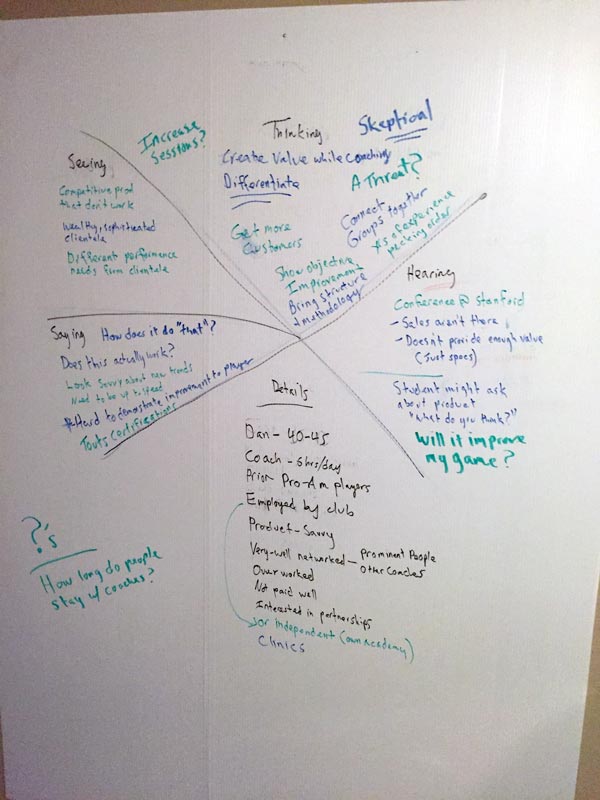 Seeing
Competitive prod
that don't work
Wealthy, sophisticated
clientele
Different performance
needs from clientele
Increase
Sessions?
Thinking
Create Value while coaching
Differentiate
Get more
Customers
Show objective
Improvement
Bring structure
+ methodology
Skeptical
A Threat?
Connect
Groups together
Yrs of experience
pecking order
Hearing
Conference @ Stanford
- Sales aren't there
- Doesn't provide enough value
(Just specs)
Student might ask
about product
"What do you think?"
Will it improve
my game?
Saying
How does it do "that"?
Does this actually work?
Look Savvy about new trends
Need to be up to speed
*Hard to demonstrate improvement to player
Touts Certifications
Details
Dan - 40-45
Coach - 6hrs/day
Prior Pro-Am players
Employed by club
Product-Savvy
Very-well networked - Prominent People
Other Coaches
Over worked
Not paid well
Interested in partnerships
or independent (own Academy)
Clinics
?'s
How long do people
stay w/ coaches?